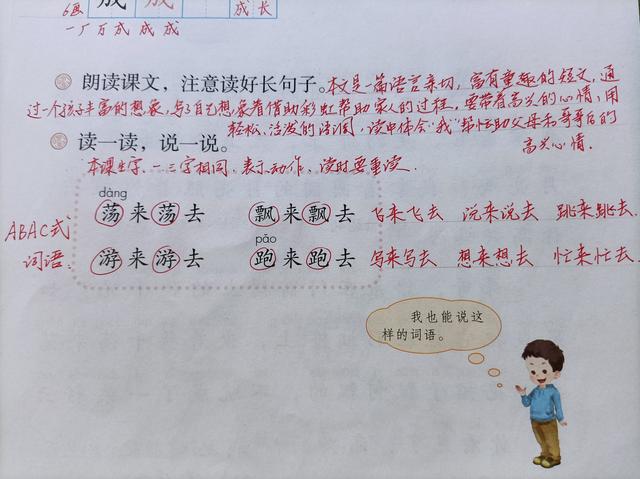 6画 成 成 成长
一厂万成成成
朗读课文，注意读好长句子。本文是一篇语言亲切，富有童趣的短文，通
过一个孩子丰富的想象，写了自己想象着借助彩虹帮助家人的过程，要带着高兴的心情，用
轻松、活泼的语调，读中体会“我”帮忙助父母和哥哥后的
高兴心情.
读一读，说一说。
本课生字、一三字相同，表示动作，读时要重读.
dàng
荡来荡去 飘来飘去 飞来飞去 说来说去 跳来跳去.
ABAC式
词语.
pǎo
游来游去 跑来跑去 写来写去 想来想去 忙来忙去.
我也能说这
样的词语。